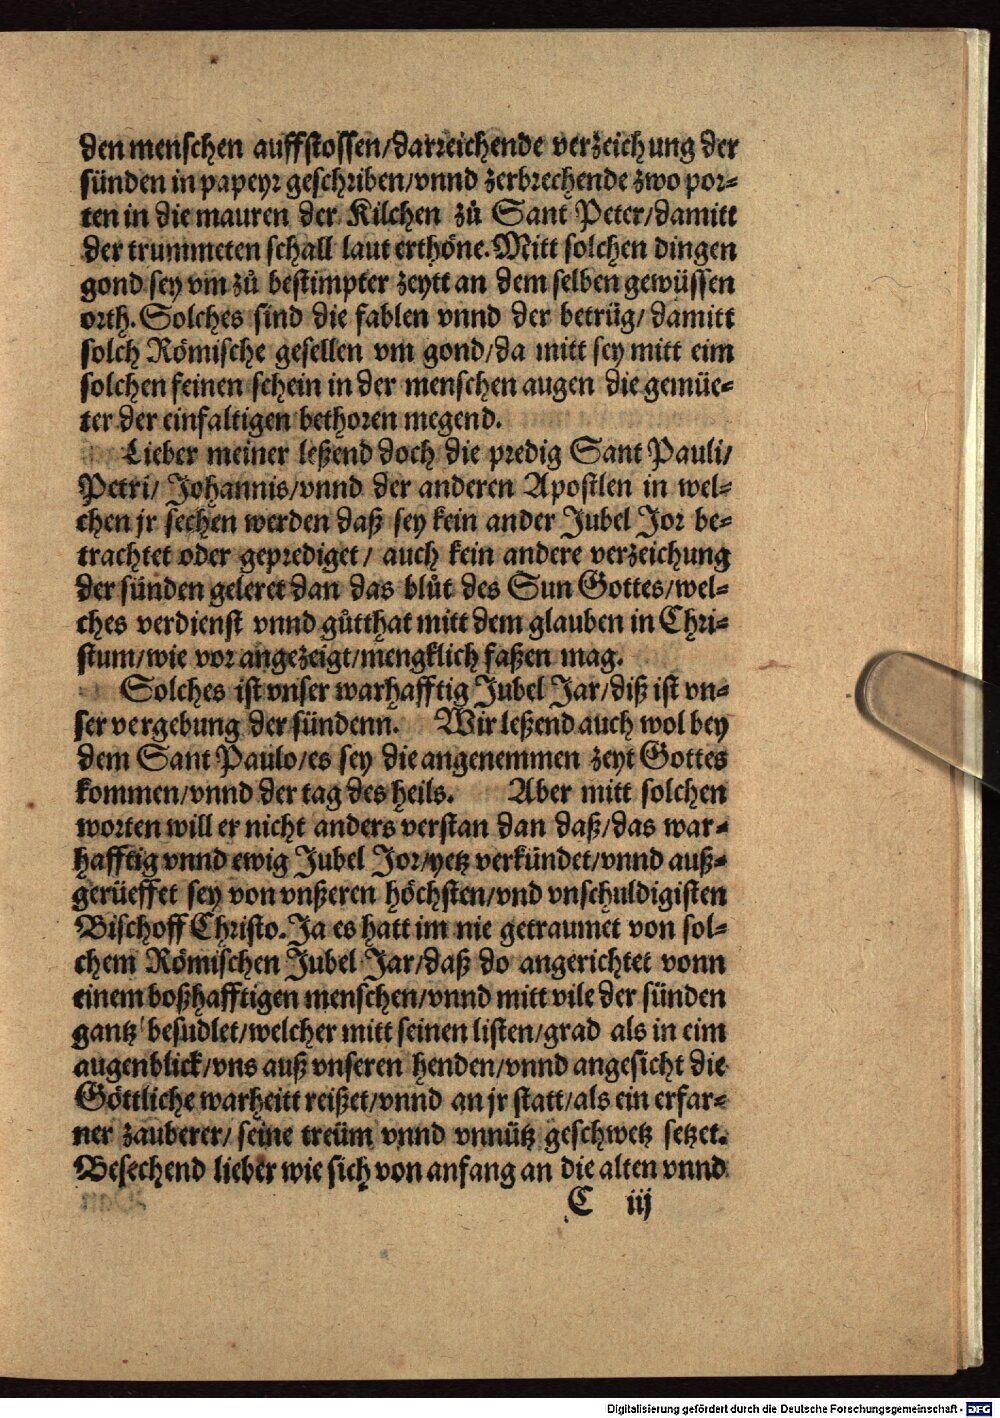 den menschen auffstossen/darreichende verzeichung der
sünden in papeyr geschriben/vnnd zerbrechende zwo por⸗
ten in die mauren der Kilchen zů Sant Peter/damitt
der trummeten schall laut erthöne. Mitt solchen dingen
gond sey vm zů bestimpter zeytt an dem selben gewüssen
orth. Solches sind die fablen vnnd der betrüg/damitt
solch Römische gesellen vm gond/da mitt sey mitt eim
solchen feinen schein in der menschen augen die gemüe⸗
ter der einfaltigen bethoren megend.
Lieber meiner leßend doch die predig Sant Pauli/
Petri/ Johannis/vnnd der anderen Apostlen in wel⸗
chen jr sechen werden daß sey kein ander Jubel Jor be⸗
trachtet oder geprediget/ auch kein andere verzeichung
der sünden geleret dan das blůt des Sun Gottes/wel⸗
ches verdienst vnnd gůtthat mitt dem glauben in Chri⸗
stum/wie vor angezeigt/mengklich faßen mag.
Solches ist vnser warhafftig Jubel Jar/diß ist vn⸗
ser vergebung der sündenn. Wir leßend auch wol bey
dem Sant Paulo/es sey die angenemmen zeyt Gottes
kommen/vnnd der tag des heils. Aber mitt solchen
worten will er nicht anders verstan dan daß/das war⸗
hafftig vnnd ewig Jubel Jor/yetz verkündet/vnnd auß⸗
gerüeffet sey von vnßeren höchsten/vnd vnschuldigisten
Bischoff Christo. Ja es hatt im nie getraumet von sol⸗
chem Römischen Jubel Jar/daß do angerichtet vonn
einem boßhafftigen menschen/vnnd mitt vile der sünden
gantz besudlet/welcher mitt seinen listen/grad als in eim
augenblick/vns auß vnseren henden/vnnd angesicht die
Göttliche warheitt reißet/vnnd an jr statt/als ein erfar⸗
ner zauberer/ seine treüm vnnd vnnütz geschwetz setzet.
Besechend lieber wie sich von anfang an die alten vnnd
C iij
Digitalisierung gefördert durch die Deutsche Forschungsgemeinschaft - DFG